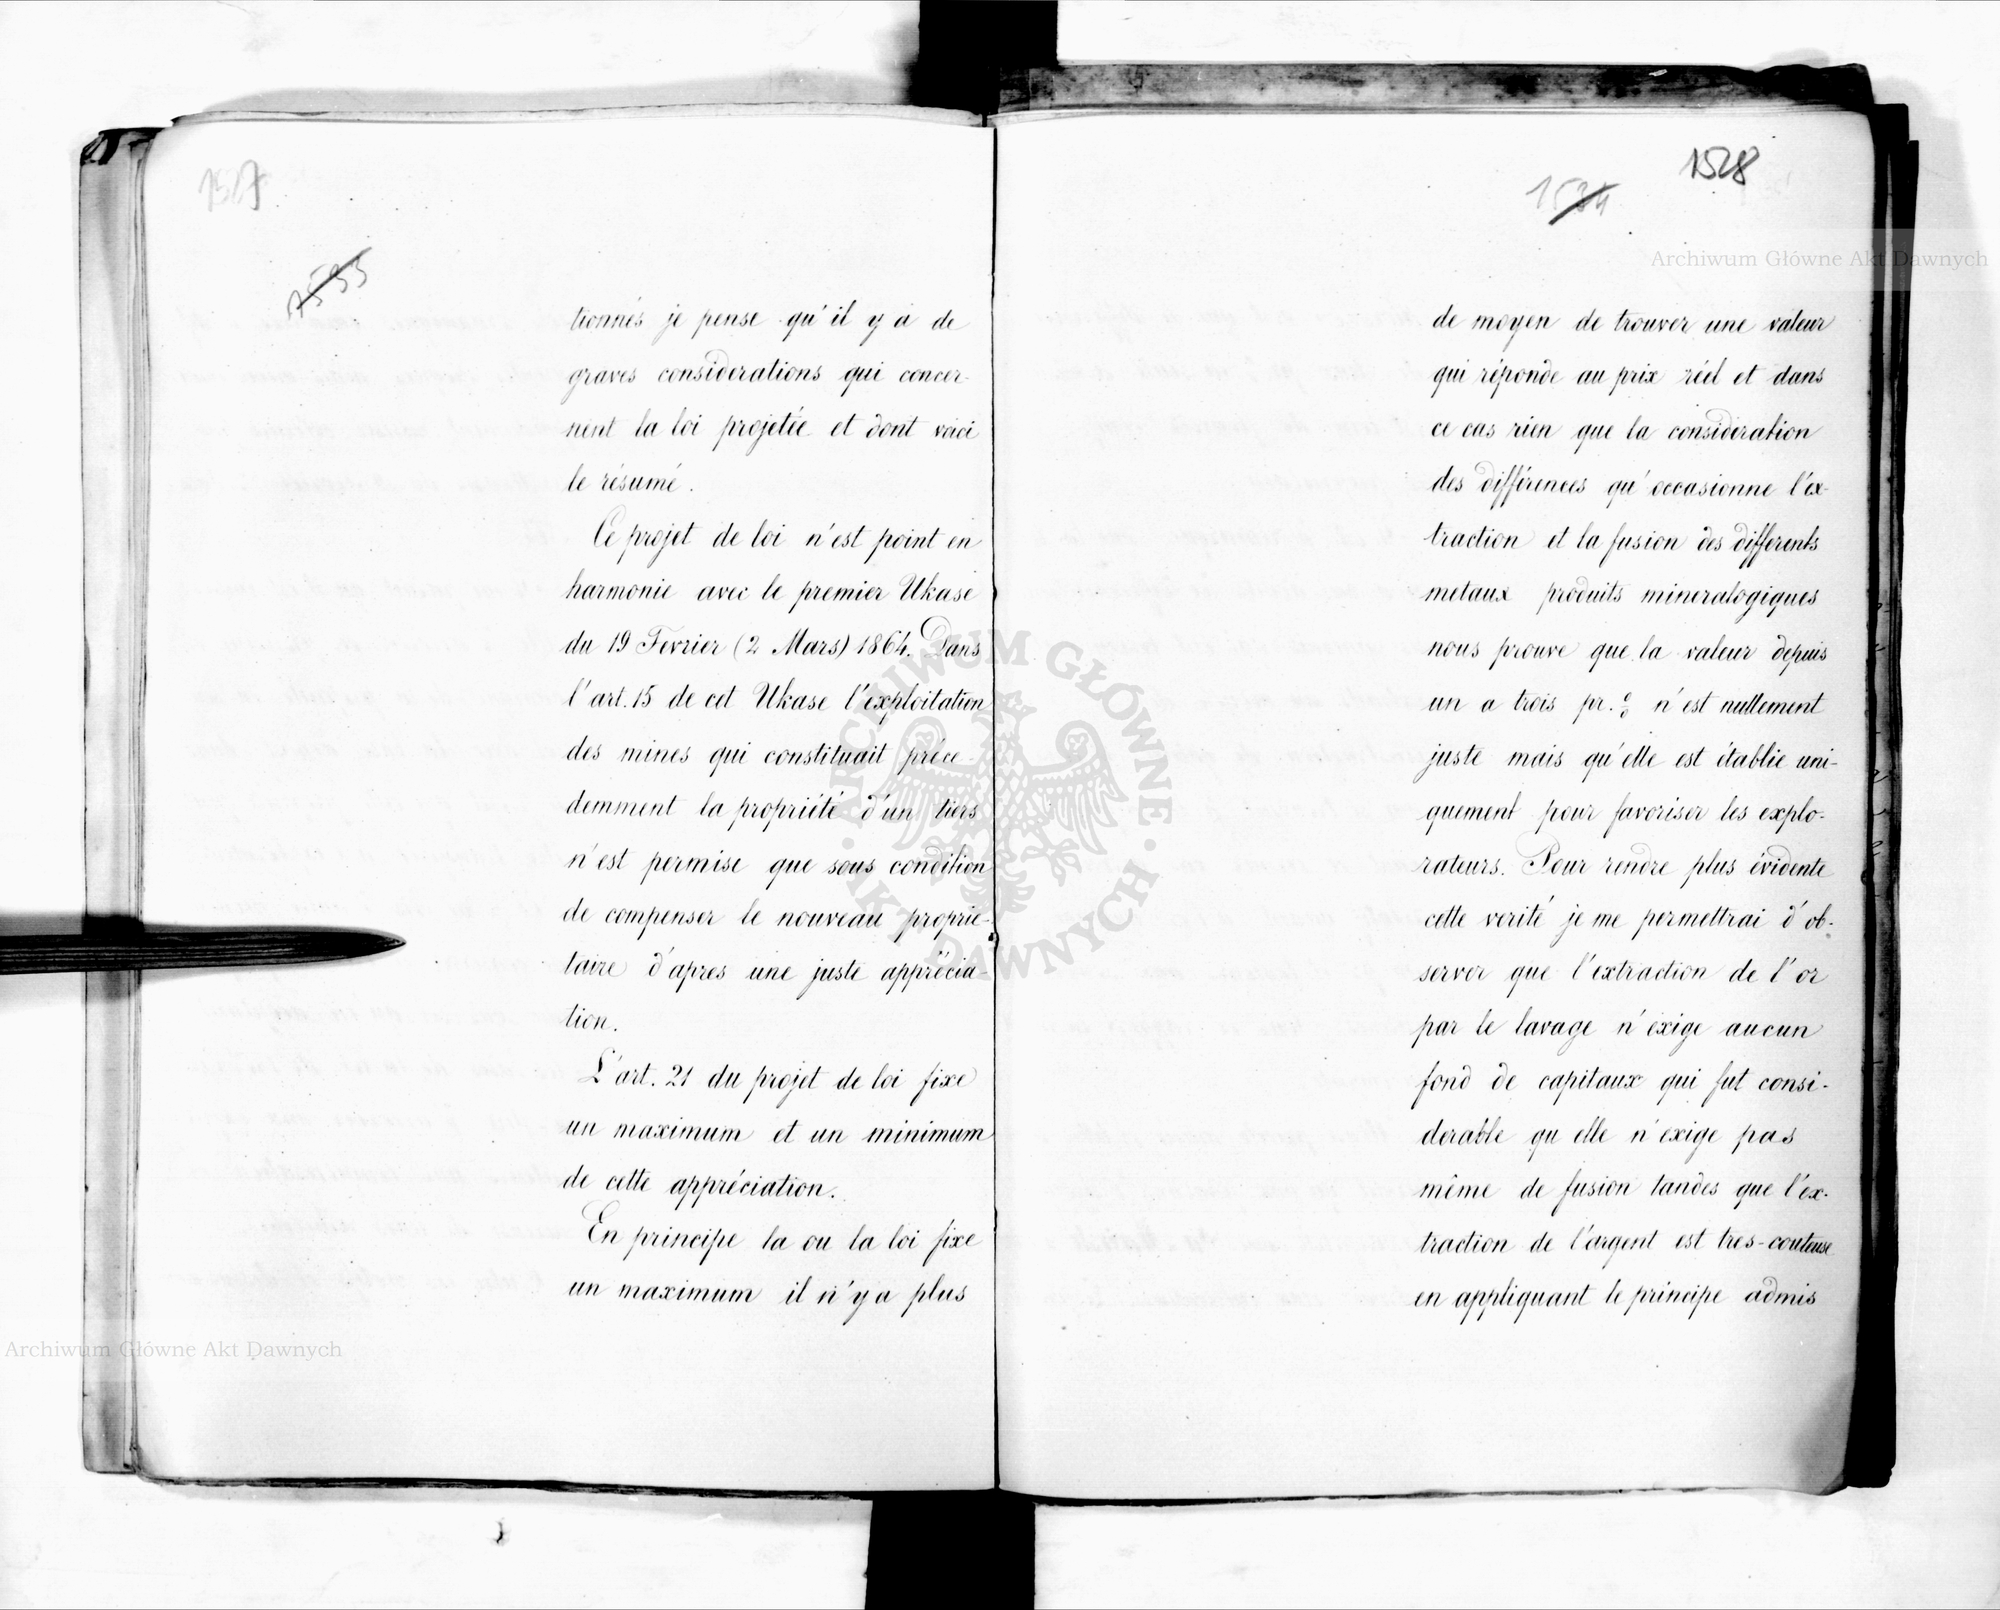 1527
1533
tionnés je pense qu'il y a de
graves considerations qui concer-
nent la loi projetée et dont voici
le résumé.
Ce projet de loi n'est point en
harmonie avec le premier Ukase
du 19 Fevrier (2 Mars) 1864. Dans
l'art. 15 de cet Ukase l'exploitation
des mines qui constituait préce-
demment la propriété d'un tiers
n'est permise que sous condition
de compenser le nouveau proprie-
taire d'apres une juste apprécia-
tion.
L'art. 21 du projet de loi fixe
un maximum et un minimum
de cette appréciation.
En principe la ou la loi fixe
un maximum il n'y a plus
1528
1534
de moyen de trouver une valeur
qui réponde au prix réel et dans
ce cas rien que la consideration
des différences qu'occasionne l'ex-
traction et la fusion des differents
metaux produits mineralogiques
nous prouve que la valeur depuis
un a trois pr. % n'est nullement
juste mais qu'elle est établie uni-
quement pour favoriser les explo-
rateurs. Pour rendre plus évidente
cette verité je me permettrai d'ob-
server que l'extraction de l'or
par le lavage n'exige aucun
fond de capitaux qui fut consi-
derable qu elle n'exige pas
même de fusion tandes que l'ex-
traction de l'argent est tres-couteuse
en appliquant le principe admis
Archiwum Główne Akt Dawnych
ARCHIWUM GŁÓWNE AKT DAWNYCH
Archiwum Główne Akt Dawnych